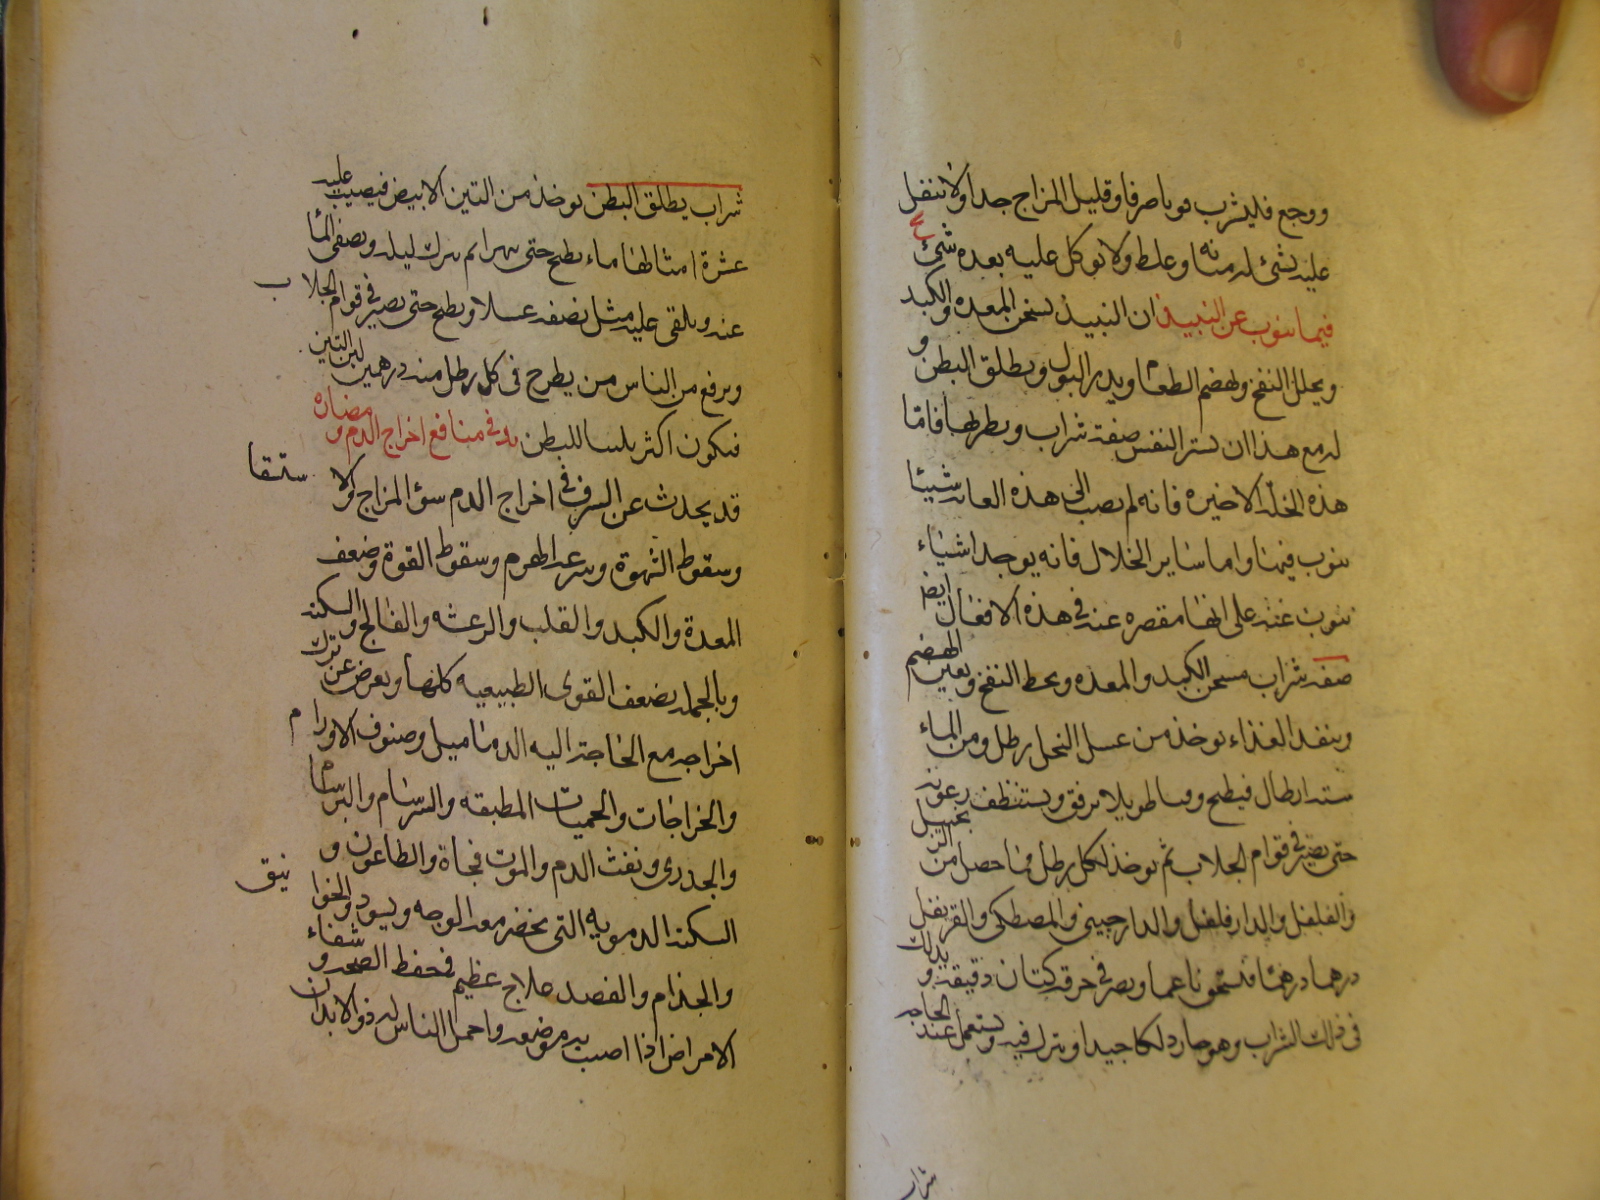 ووجع فليشرب قويا صرفا وقليل المزاج جدا ولا يتنقل
عليه بشئ له متانه وغلظ ولا يوكل عليه بعده شئ
فيما ينوب عن النبيذ ان النبيذ يسخن المعده والكبد
ويحلل النفخ ويهضم الطعام ويدر البول ويطلق البطن و
له مع هذا ان يسر النفس صفة شراب ويطربها فاما
هذه الخلة الاخيره فانه لم يصب الى هذه الغايه شيئا
ينوب فيها واما ساير الخلال فانه يوجد اشياء
تنوب عنه على انها مقصره عنه في هذه الافعال ايضا
صفة شراب يسخن الكبد والمعده ويحط النفخ ويعين الهضم
وينفد الغذاء يوخذ من عسل النحل رطل ومن الماء
ستة ارطال فيطبخ وقتا طويلا برفق ويستنظف رغوته
حتى يصير في قوام الجلاب ثم يوخذ لكل رطل مما حصل من الزنجبيل
والفلفل والدارفلفل والدارجيني والمصطكى والقرنفل
درهما درهما فتسحق ناعما ويصر في خرقة كتان دقيقة ويدلك
في ذلك الشراب وهو حار دلكا جيدا ويترك فيه ويستعمل عند الحاجه
شراب
شراب يطلق البطن يوخذ من التين الابيض فيصب عليه
عشرة امثالها ماء يطبخ حتى يتهرا ثم يترك ليله ويصفى الماء
عنه ويلقى عليه مثل نصفه عسلا ويطبخ حتى يصير في قوام الجلاب
ويرفع من الناس من يطرح في كل رطل منه درهمين لبن التين
فيكون اكثر تليينا للبطن في منافع اخراج الدم ومضاره
قد يحدث عن السرف في اخراج الدم سوء المزاج والاستسقا
وسقوط الشهوة وسرعة الهرم وسقوط القوة وضعف
المعدة والكبد والقلب والرعشه والفالج والسكته
وبالجمله يضعف القوى الطبيعيه كلها ويعرض عن ترك
اخراجه مع الحاجة اليه الدماميل وصنوف الاورام
والخراجات والحميات المطبقه والسرسام والبرسام
والجدري ونفث الدم والموت فجاة والطاعون و
السكته الدمويه التي يخضر معه الوجه ويسود والخوانيق
والجذام والفصد علاج عظيم في حفظ الصحه وشفاء
الامراض اذا اصيب به موضعه واحمل الناس له ذو الابدان